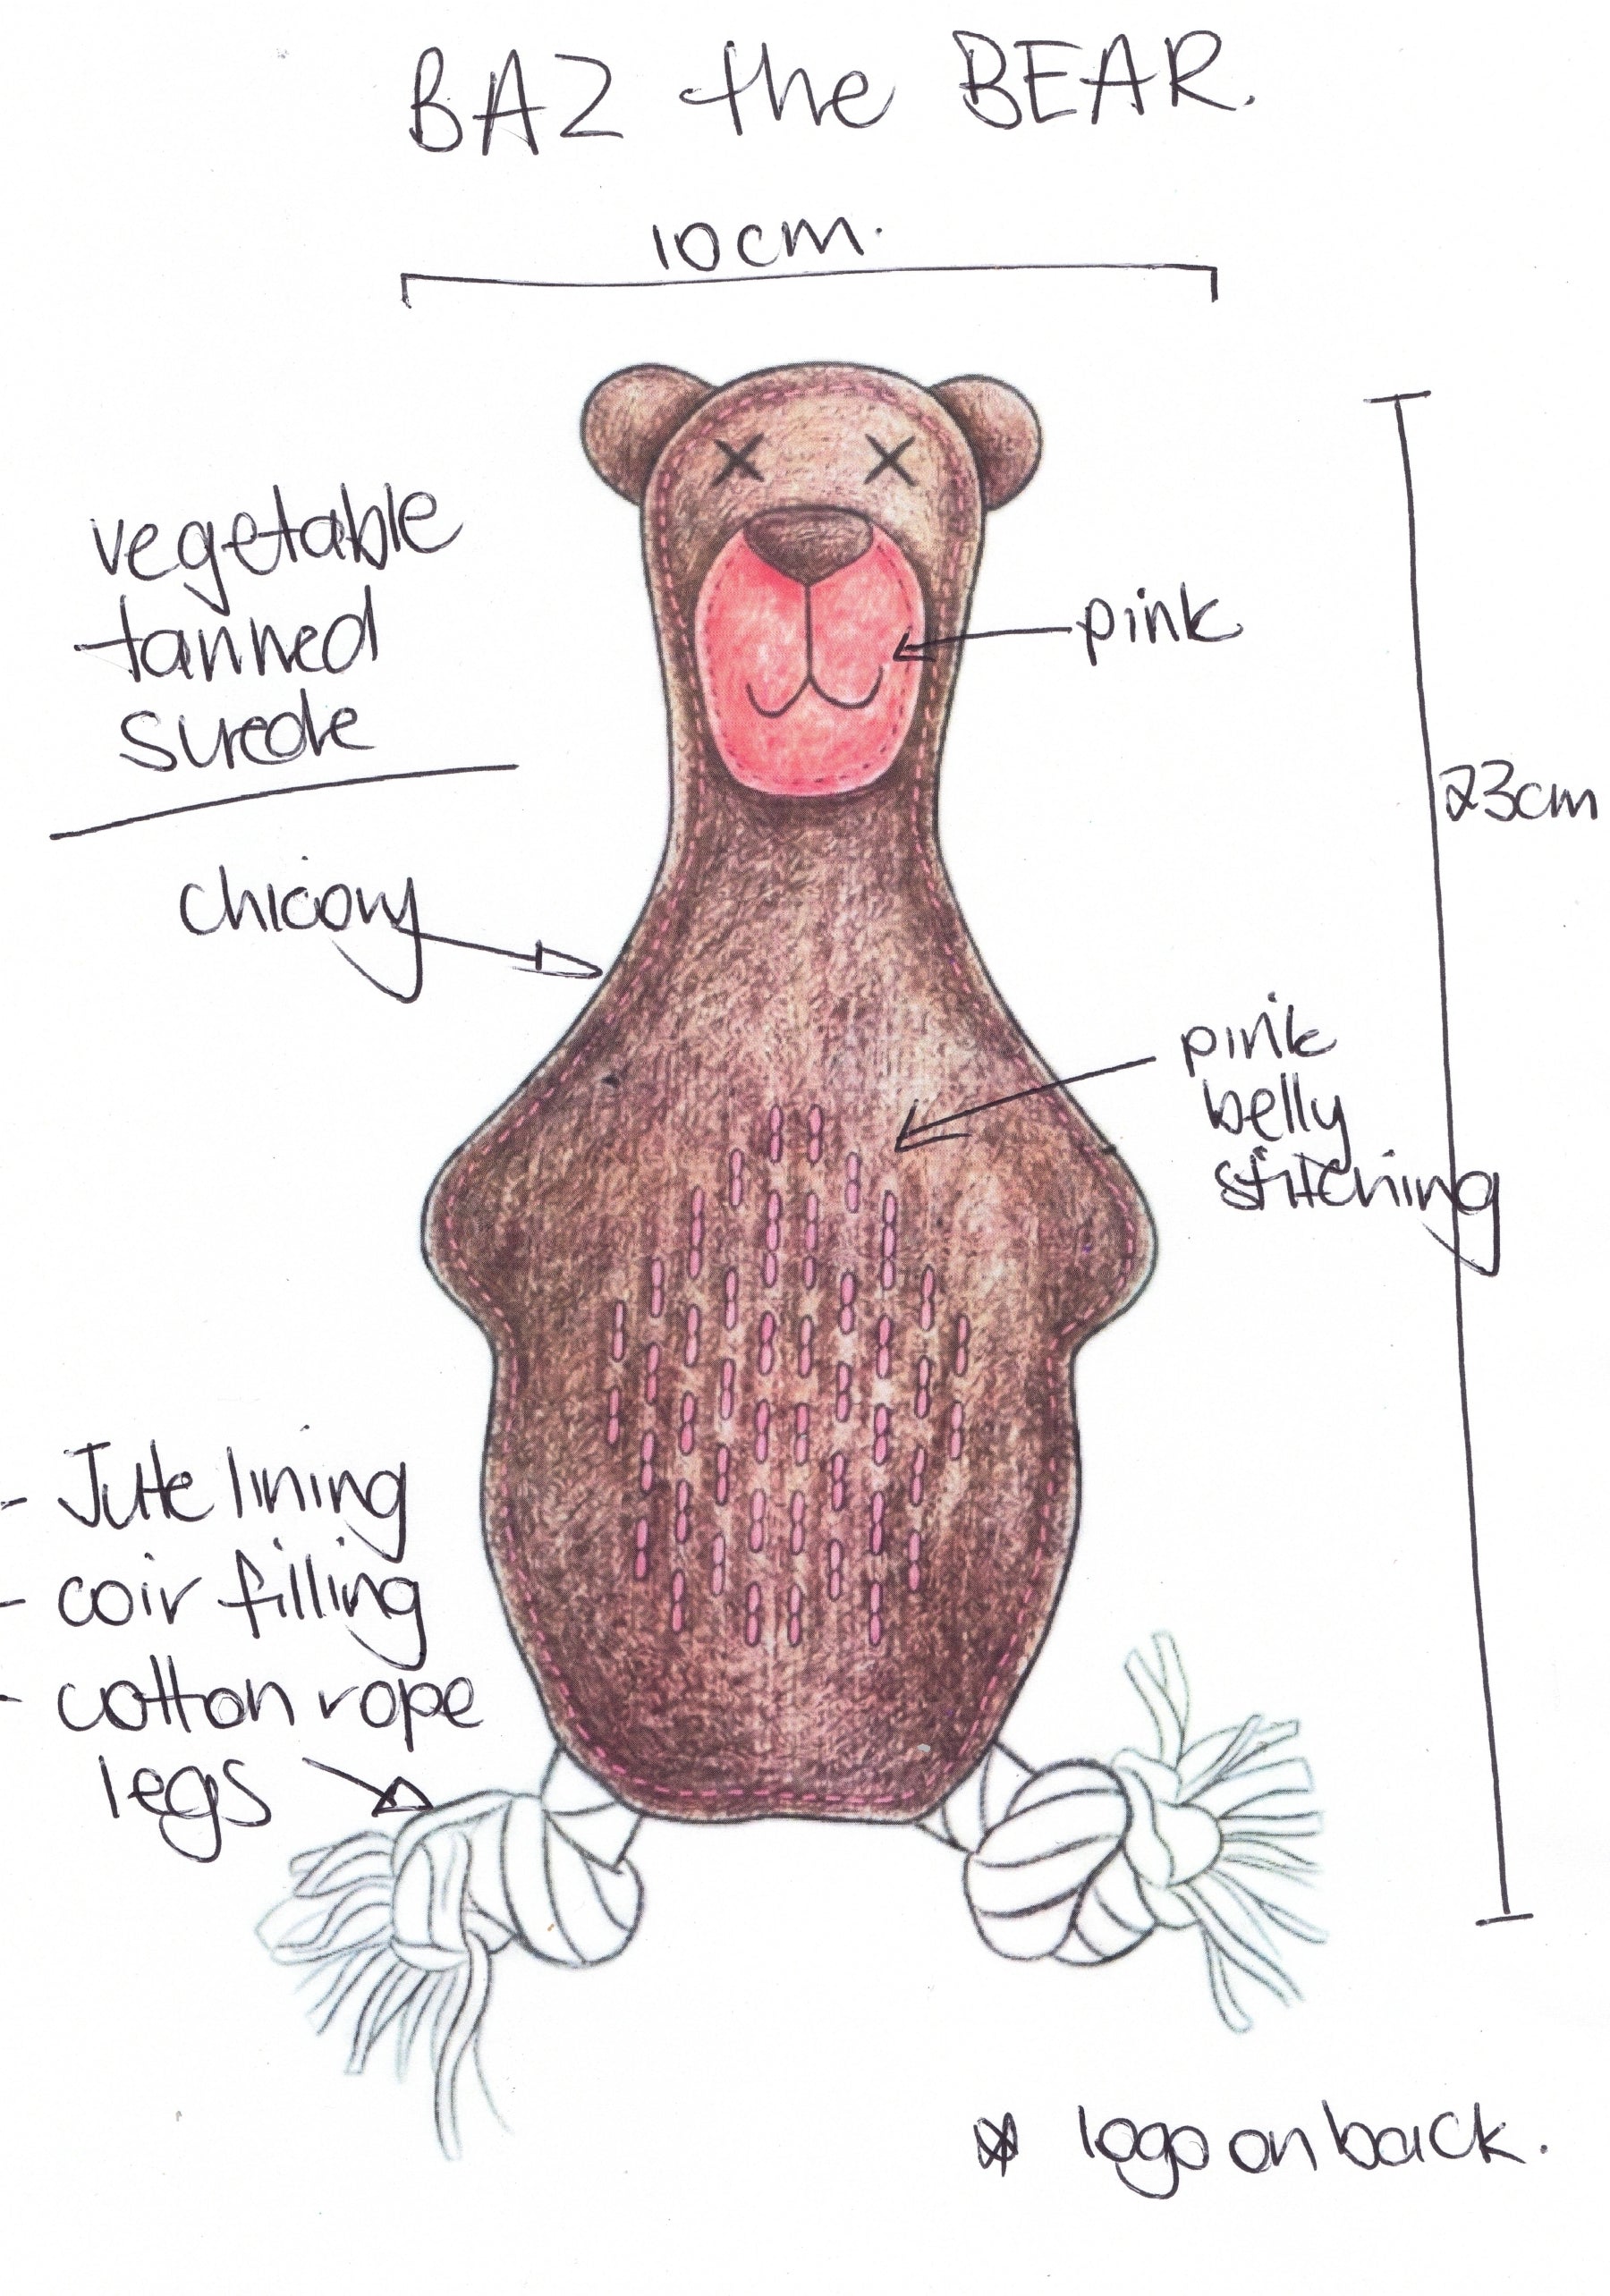 BAZ the BEAR.
10cm.
vegetable
tanned
suede
pink
23cm
chicory
pink
belly
stitching
- Jute lining
- coir filling
- cotton rope
legs
* logo on back.